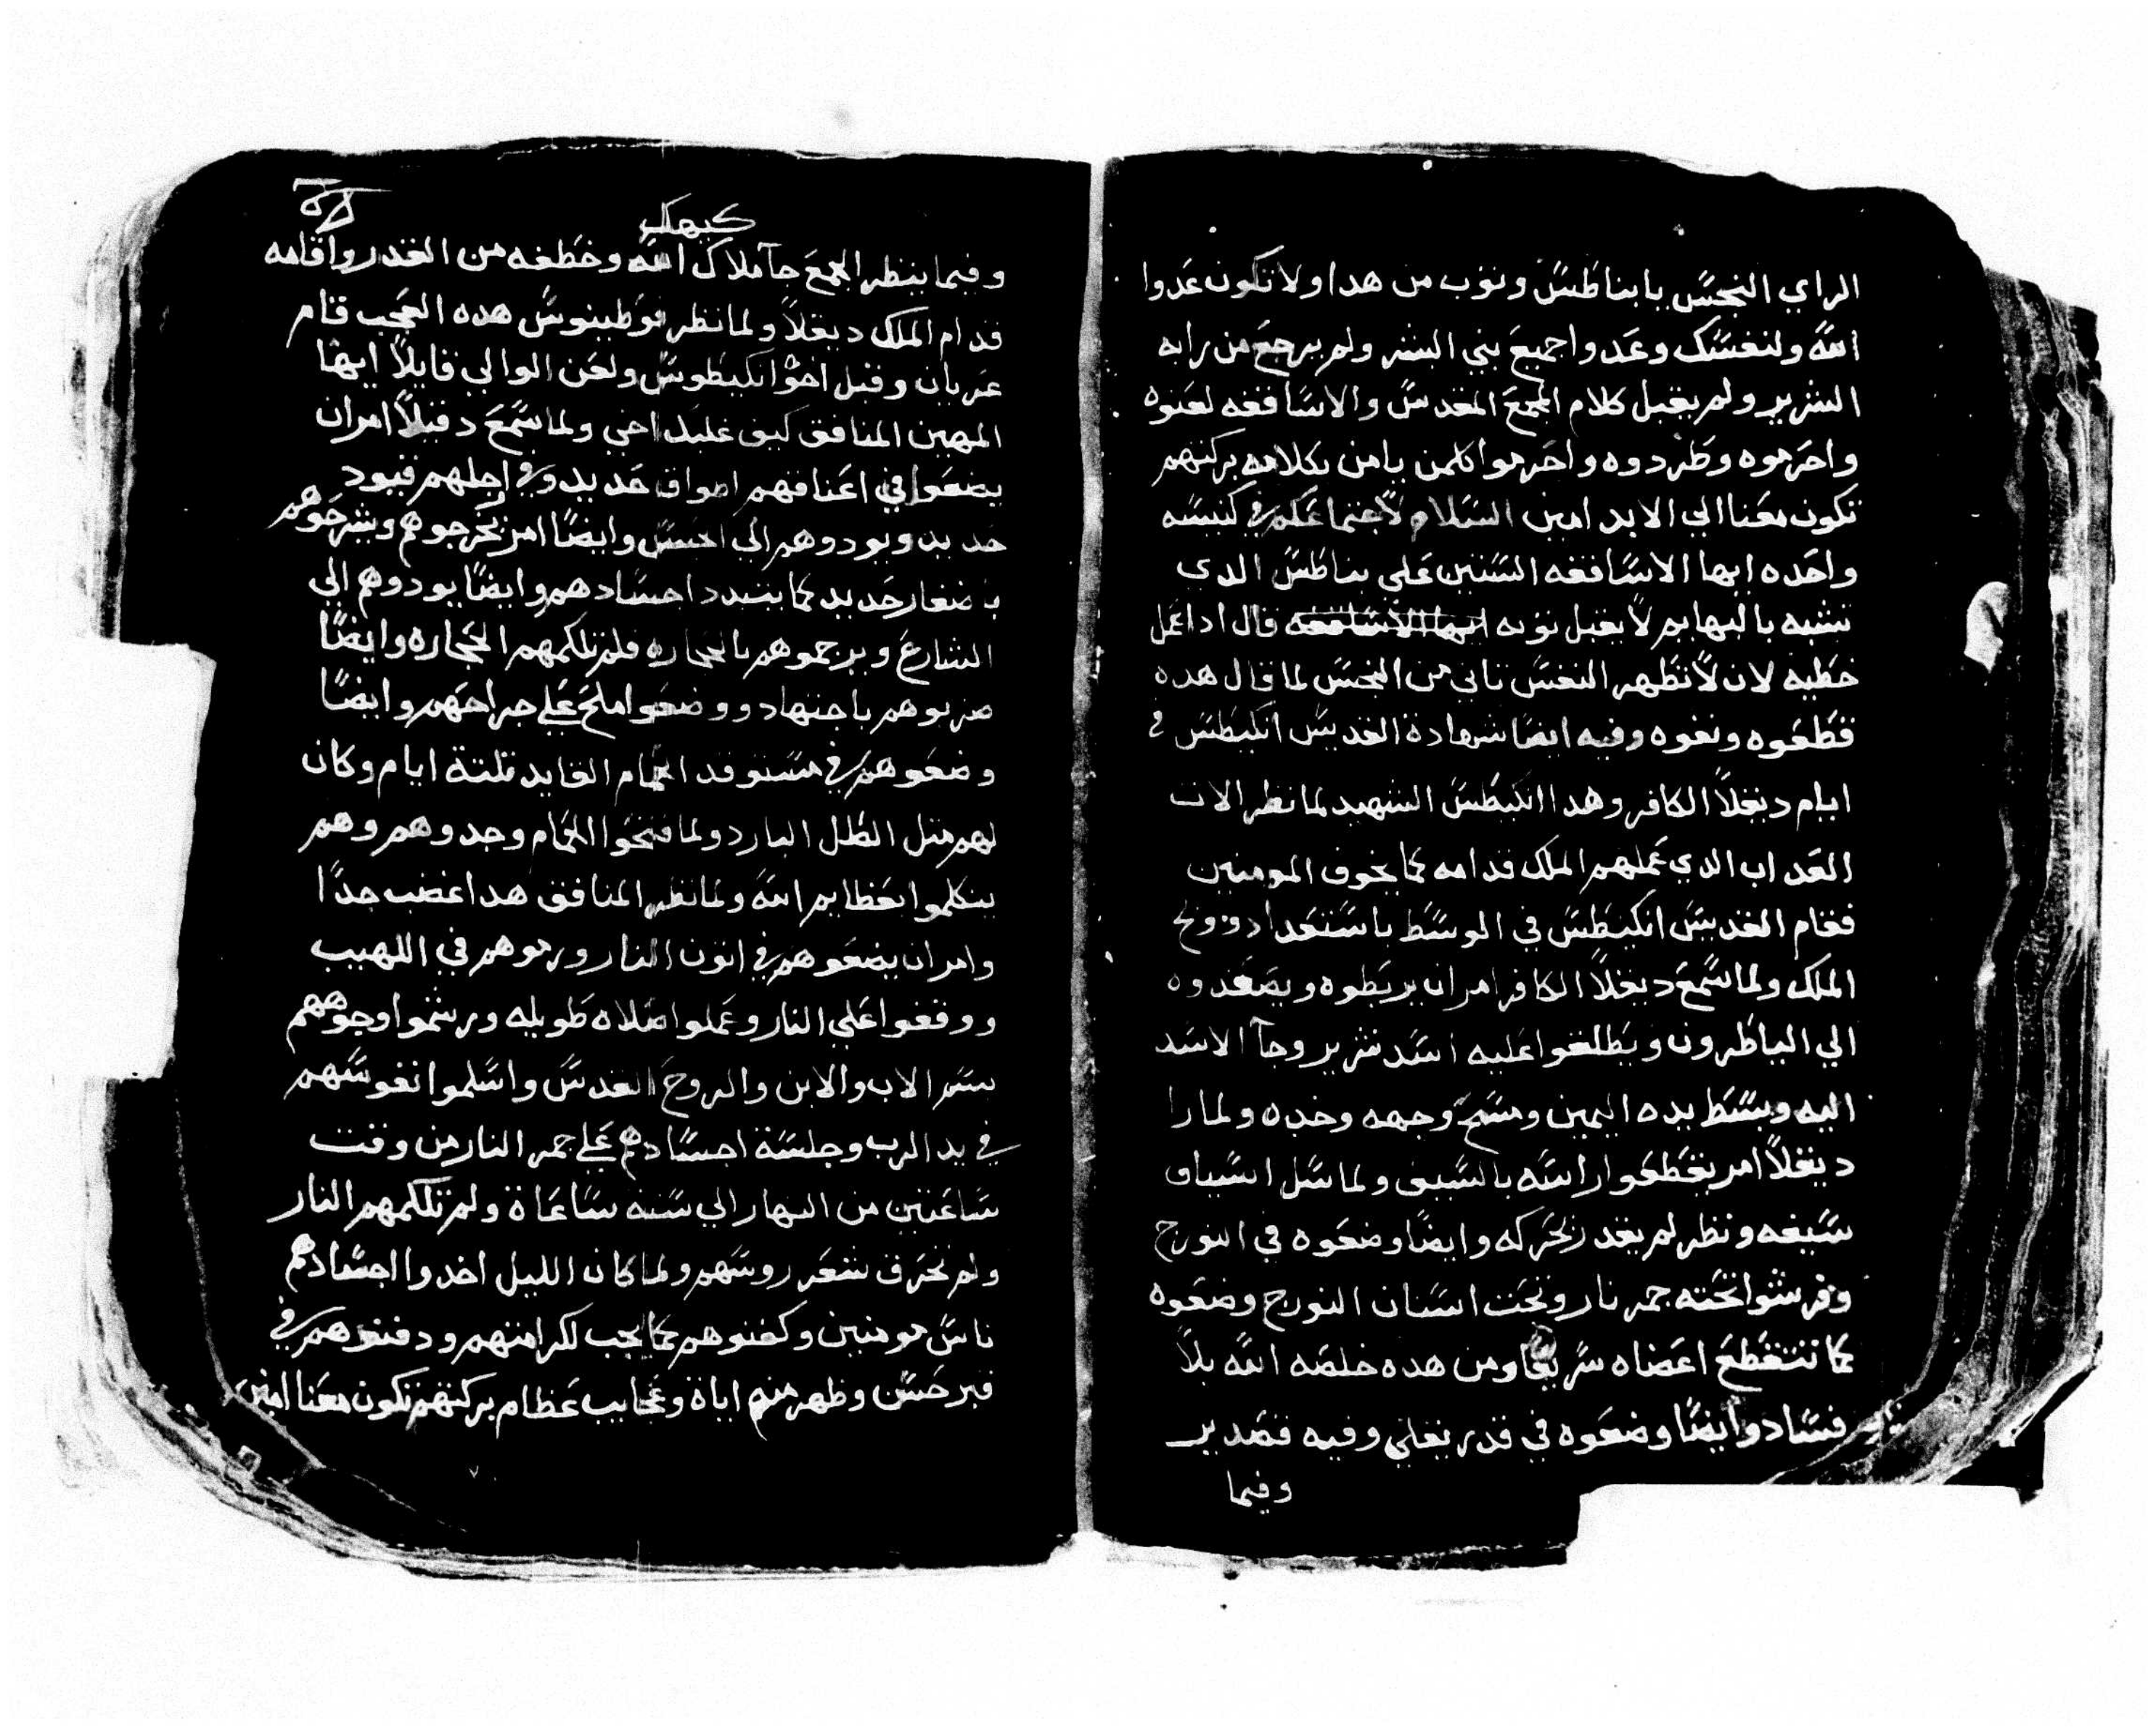 الراي النجس يا بناطس وتوب من هدا ولا تكون عدوا
الله ولنفسك وعدوا جميع بني البشر ولم يرجع من رايه
الشرير ولم يقبل كلام المجمع المقدس والاساقفه لعنوه
واحرموه وطردوه واحرموا كلمن يامن بكلامه بركتهم
تكون معنا الي الابد امين السلام لاجتماعكم في كنيسه
واحده ايها الاساقفه الستين على بناطس الدي
تشبه بالبهايم لا يقبل توبه ايها الاساقفه قال ادا عمل
خطيه لان لا تطهر النفس تاني من النجس لما قال هده
قطعوه ونفوه وفيه ايضا شهادة القديس انكيطس في
ايام ديقلا الكافر وهدا انكيطس الشهيد لما نظر الات
العداب الدي عملهم الملك قدامه كما يخوف المومنين
فقام القديس انكيطس في الوسط باستعداد ووبخ
الملك ولما سمع ديقلا الكافر امر ان يربطوه ويصعدوه
الي الياطرون ويطلقوا عليه اسد شرير وجا الاسد
اليه وبسط يده اليمين ومسح وجهه وخده ولما را
ديقلا امر يقطعوا راسه بالسيف ولما سل السياف
سيفه ونظر لم يقدر يحركه وايضا وضعوه في النورج
وفرشوا تحته جمر نار وتحت اسنان النورج وضعوه
كما تتقطع اعضاه سريعا ومن هده خلصه الله بلا
فساد وايضا وضعوه في قدر يغلي وفيه قصدير
وفيما
كيهك
وفيما ينظر الجمع جا ملاك الله وخطفه من القدر واقامه
قدام الملك ديقلا ولما نظر فوطينوس هده العجب قام
عريان وقبل اخوا انكيطوس ولعن الوالي قايلا ايها
المهين المنافق كيف غلبك اخي ولما سمع دقلا امر ان
يضعوا في اعناقهم اطواق حديد وفي اجلهم قيود
حديد ويودوهم الي الحبس وايضا امر يخرجوهم ويشرحوهم
باضفار حديد كما يتبدد اجسادهم وايضا يودوهم الي
الشارع ويرجموهم بالحجاره فلم تلكمهم الحجاره وايضا
ضربوهم باجتهاد ووضعوا ملح علي جراحهم وايضا
وضعوهم في مستوقد الحمام القايد تلتة ايام وكان
لهم متل الطل البارد ولما فتحوا الحمام وجدوهم وهم
يتكلموا بعظايم الله ولما نظر المنافق هدا غضب جدا
وامر ان يضعوهم في اتون النار ورموهم في اللهيب
ووقفوا علي النار وعملوا صلاه طويله ورشموا وجوههم
بسم الاب والابن والروح القدس واسلموا نفوسهم
في يد الرب وجلسة اجسادهم علي جمر النار من وقت
ساعتين من النهار الي ستة ساعاة ولم تلكمهم النار
ولم تحرق شعر روسهم ولما كان الليل اخدوا اجسادهم
ناس مومنين وكفنوهم كما يجب لكرامتهم ودفنوهم في
قبر حسن وظهر منهم اياة وعجايب عظام بركتهم تكون معنا امين